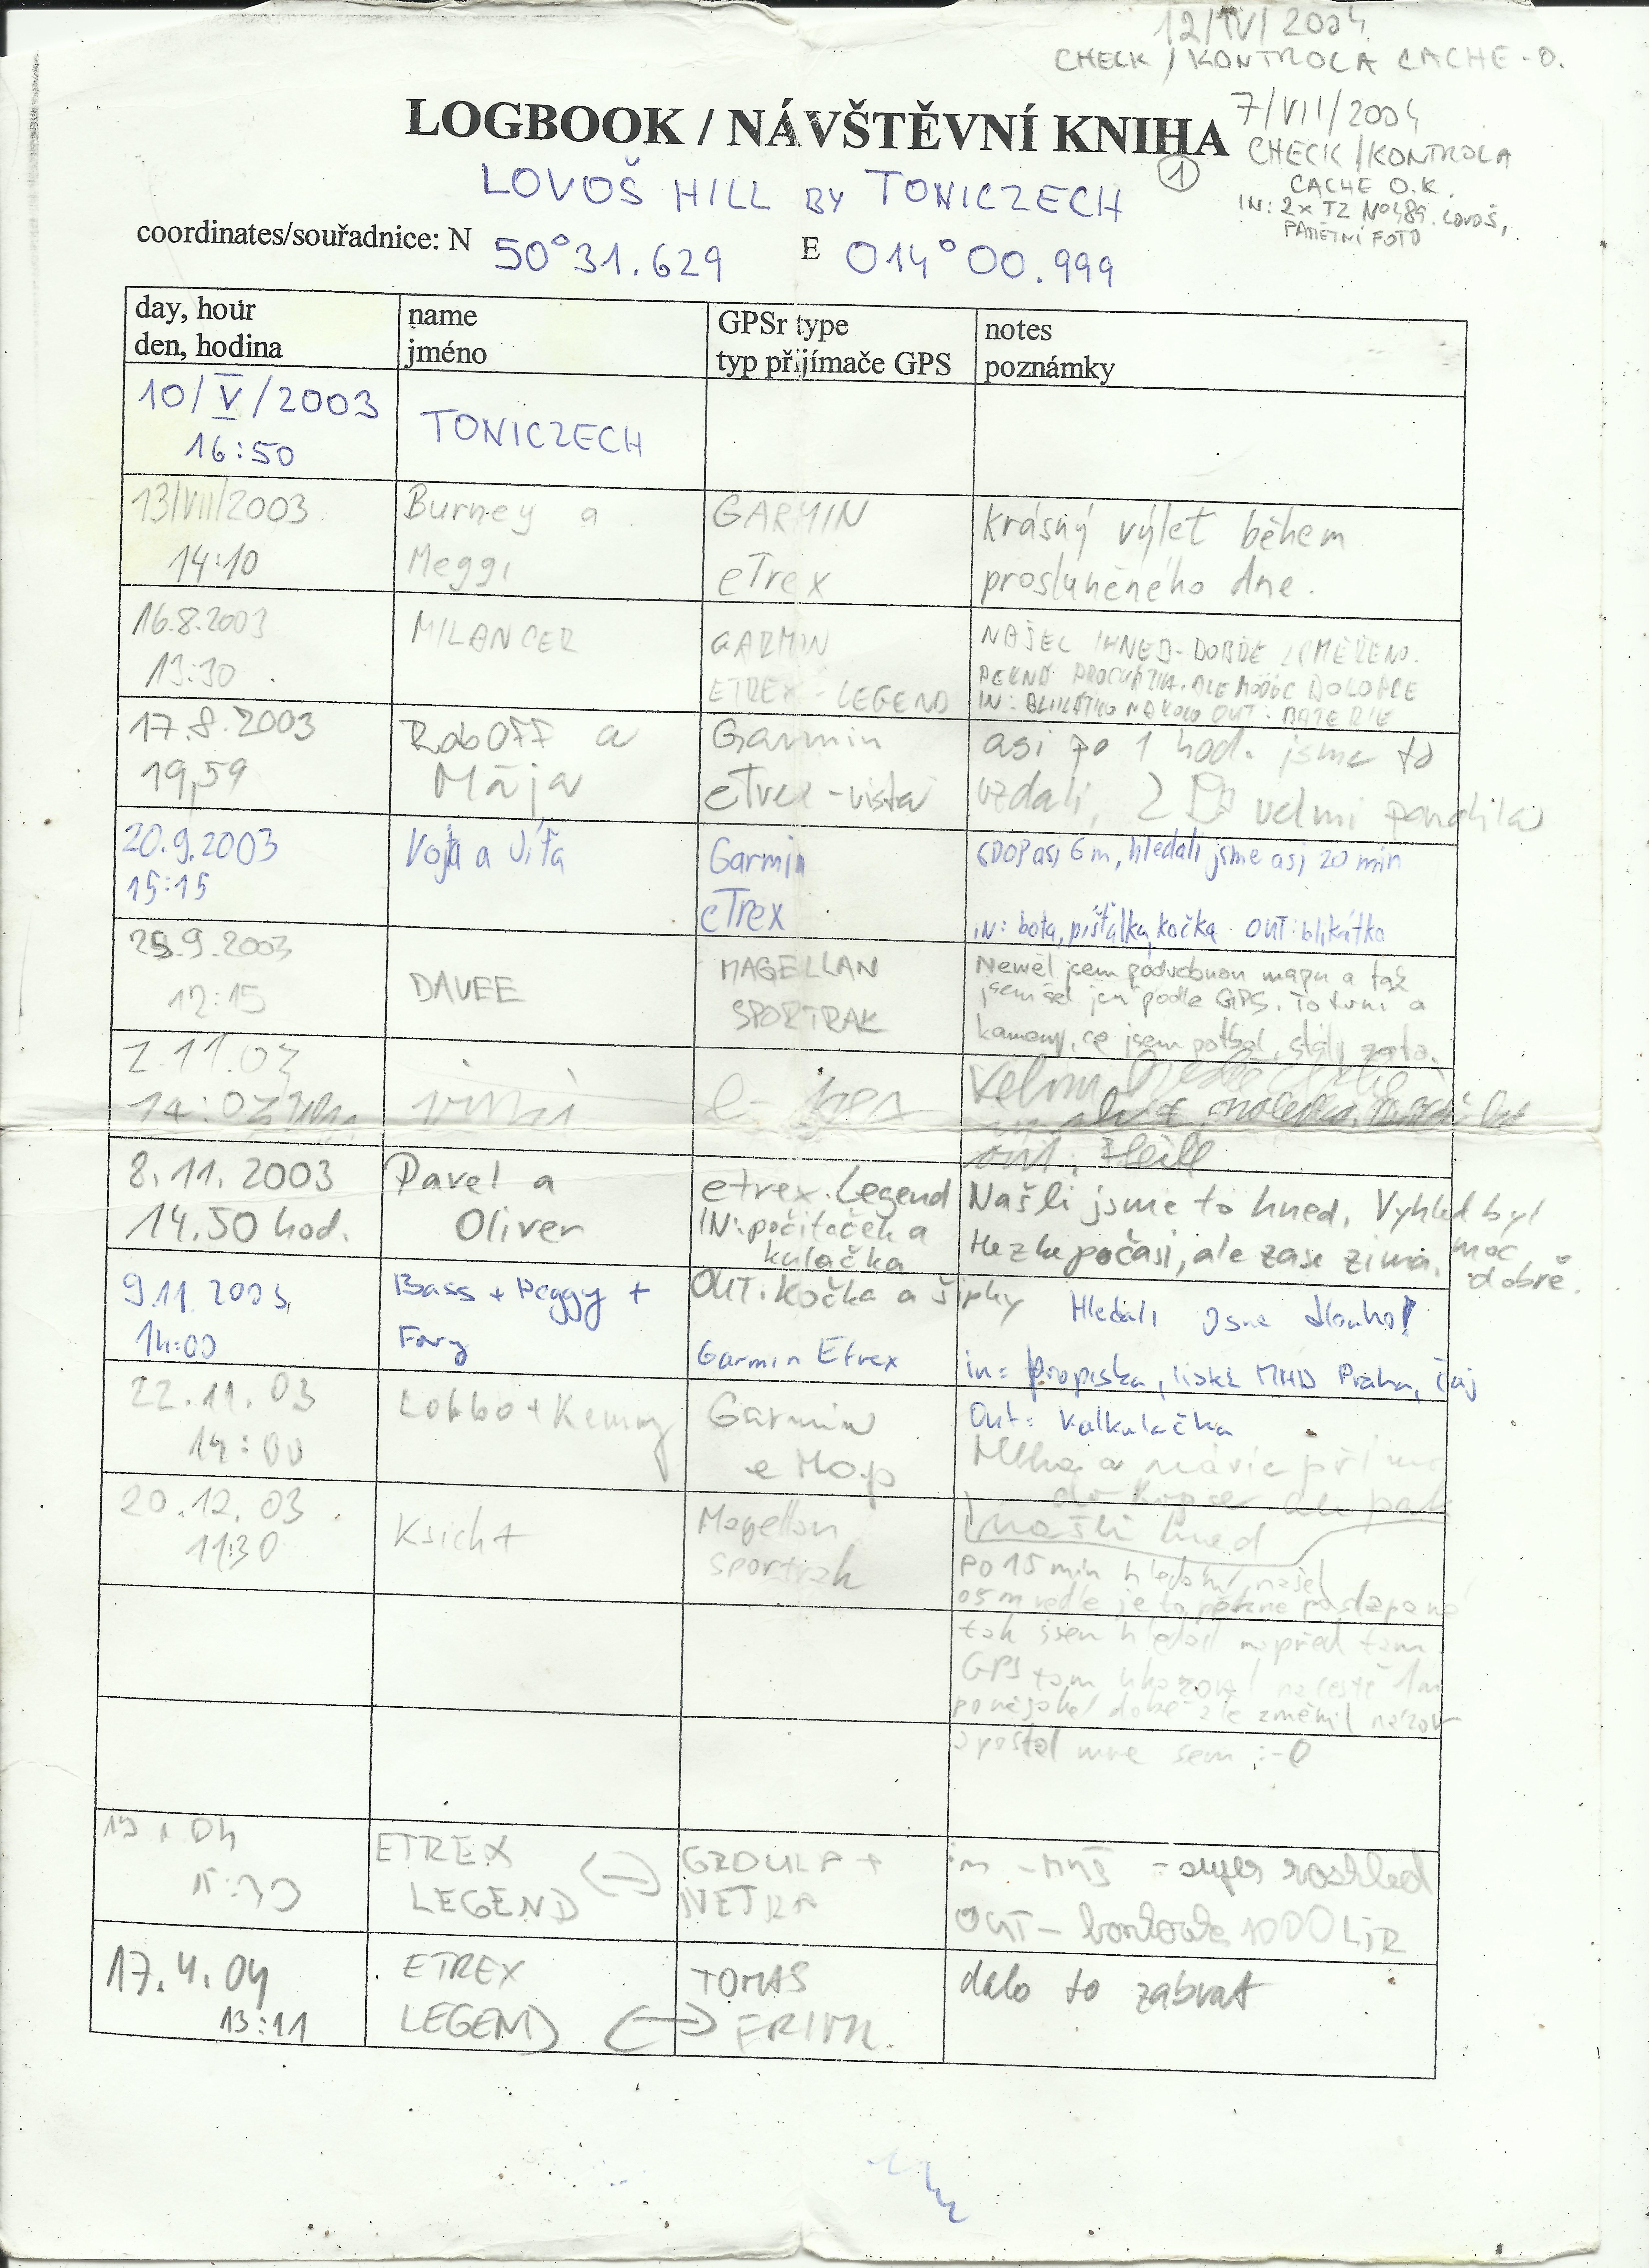 12/IV/2004
CHECK / KONTROLA CACHE - O.
LOGBOOK / NÁVŠTĚVNÍ KNIHA
1
7/VII/2004
CHECK / KONTROLA
CACHE O.K.
IN: 2x TZ No 489. Lovoš,
PAMĚTNÍ FOTO
LOVOŠ HILL BY TONICZECH
coordinates/souřadnice: N 50°31.629 E 014°00.999
day, hour
den, hodina
name
jméno
GPSr type
typ přijímače GPS
notes
poznámky
10/V/2003
16:50
TONICZECH
13/VII/2003
14:10
Burney a
Meggi
GARMIN
eTrex
krásný výlet během
prosluněného dne.
16.8.2003
13:30
MILANCER
GARMIN
ETREX - LEGEND
NAŠEL IHNED - DOBŘE ZAMĚŘENO.
PĚKNÁ PROCHÁZKA. ALE
IN: BLIKÁTKO NA KOLO OUT: BATERIE
17.8.2003
19,59
RobOFF a
Mája
Garmin
eTrex - vista
asi po 1 hod. jsme to
vzdali, 2 velmi
20.9.2003
15:15
Vojta a Víťa
Garmin
eTrex
asi 6 m, hledali jsme asi 20 min
IN: bota, píšťalka, kočka OUT: blikátko
25.9.2003
12:15
DAVEE
MAGELLAN
SPORTRAK
Neměl jsem podrobnou mapu a tak
jsem šel jen podle GPS. To trní a
kameny, co jsem potkal, stály zato.
2.11.03
14:03
8.11.2003
14.50 hod.
Pavel a
Oliver
etrex Legend
IN: počítaček a
kulačka
OUT: Kočka a šipky
Našli jsme to hned. Vyhled byl
Hezke počasí, ale zase zima. moc
dobré.
9.11.2003
14:00
Bass + Peggy +
Garmin Etrex
Hledali jsme dlouho!
in: propiska, lístek MHD Praha, čaj
Out: kalkulačka
22.11.03
14:00
Lobbo + Kemny
Garmin
e Map
Mlha a
do kopce ale pak
našli hned
20.12.03
11:30
Ksicht
Magellan
sportrak
po 15 min hledání našel
05m vedle je to pěkne
tak jsem hledal napřed tam
GPS tam ukazoval na cestě 1m
po nějaké době ale změnil názor
a postal mne sem :-0
04
ETREX
LEGEND
NETRA
in - myš - super rozhled
OUT - bankovka 1000 LIR
17.4.04
13:11
ETREX
LEGEND
TOMAS
dalo to zabrat